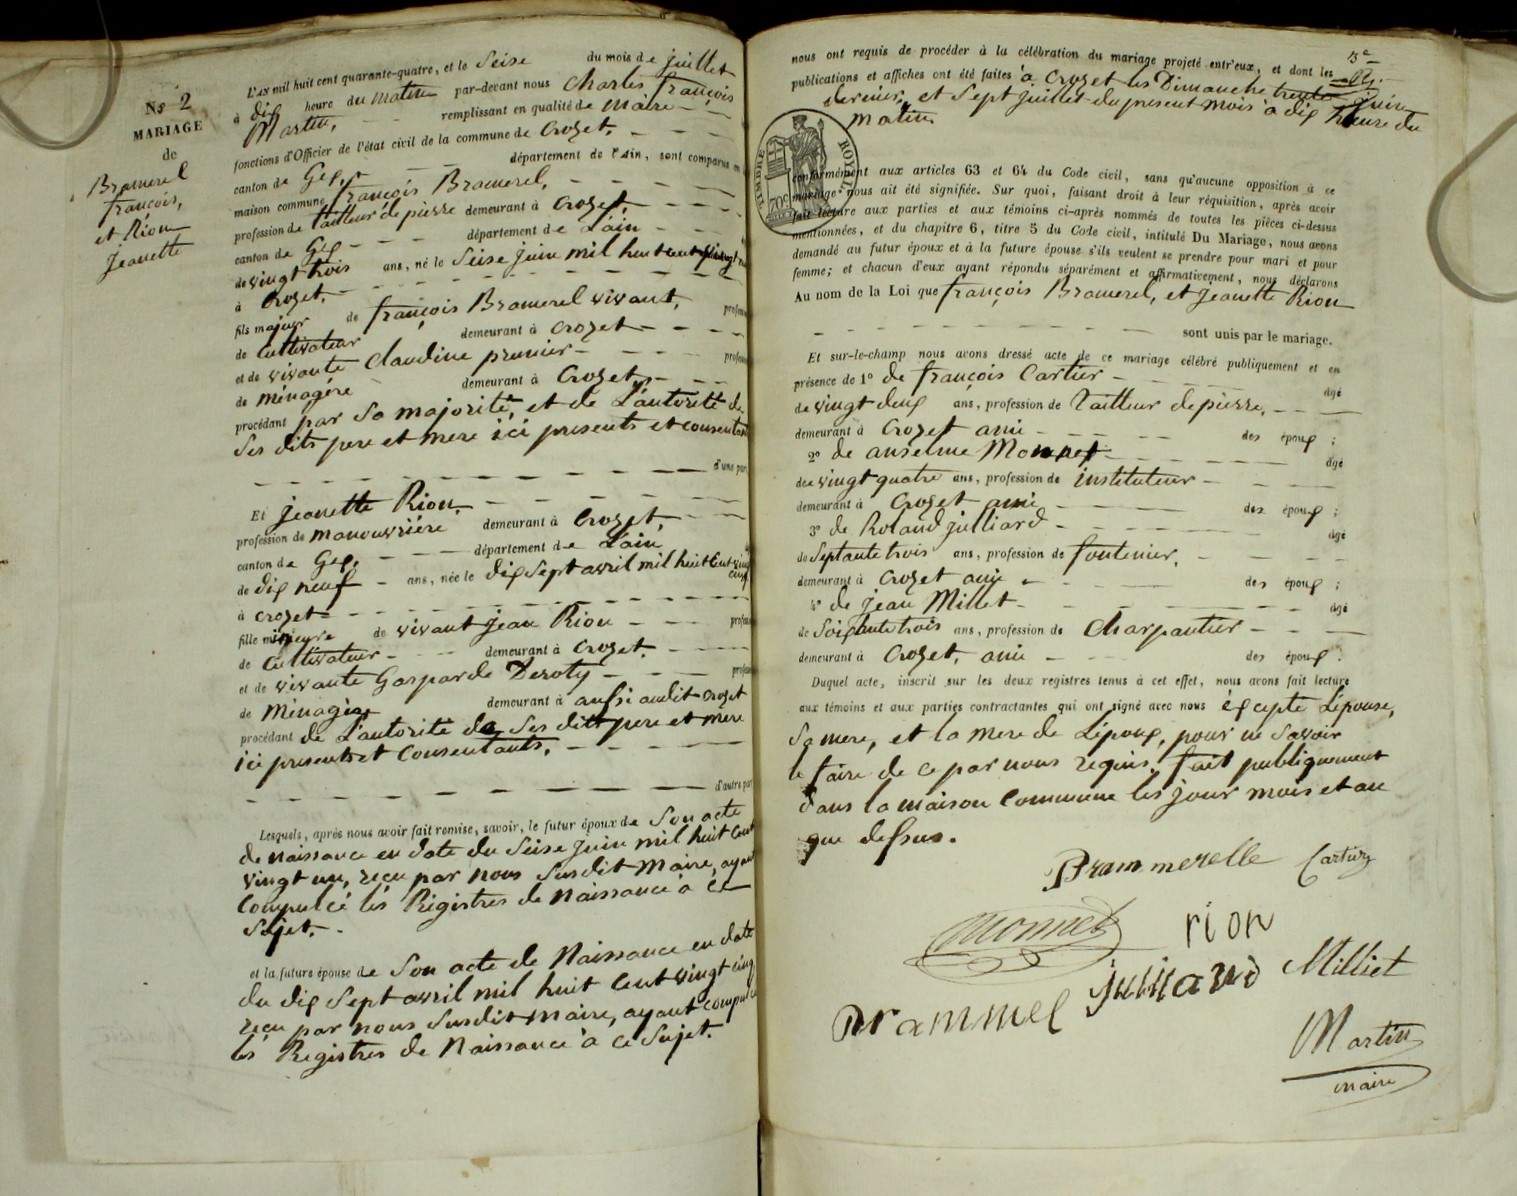 No 2
MARIAGE
de
Bramerel
françois,
et Rion
Jeanette
L'AN mil huit cent quarante-quatre, et le Seise du mois de juillet
à dix heure du matin par-devant nous Charles françois
Martin, remplissant en qualité de Maire
fonctions d'Officier de l'état civil de la commune de Crozet,
canton de Gex, département de l'Ain, sont comparus en
maison commune françois Bramerel,
profession de tailleur de pierre demeurant à Crozet,
canton de Gex département de L'ain
de vingt trois ans, né le Seise juin mil huit cent vingt un
à Crozet,
fils majeur de françois Bramerel vivant, profession
de Cultivateur demeurant à Crozet
et de vivante Claudine prunier profession
de Ménagère demeurant à Crozet,
procédant par Sa majorité, et de L'autorité de
Ses dits pere et mere ici presents et consentant
d'une part
Et Jeanette Rion,
profession de manouvrière demeurant à Crozet,
canton de Gex, département de L'ain
de dix neuf ans, née le dix Sept avril mil huit Cent vingt
cinq
à crozet
fille mineure de vivant Jean Rion profession
de Cultivateur demeurant à Crozet.
et de vivante Gasparde Deroty profession
de Ménagère demeurant à aussi audit crozet
procédant de L'autorité de Ses dits pere et mere
ici presents et Consentants,
d'autre part
Lesquels, après nous avoir fait remise, savoir, le futur époux de Son acte
de naissance en date du Seise juin mil huit Cent
vingt un, reçu par nous Susdit Maire, ayant
Compulcé les Régistres de Naissance à ce
Sujet.
et la future épouse de Son acte de Naissance en date
du dix Sept avril mil huit Cent vingt cinq
reçu par nous Susdit maire, ayant compulcé
les Régistres de Naissance à ce Sujet.
nous ont requis de procéder à la célébration du mariage projeté entr'eux, et dont les
publications et affiches ont été faites à Crozet les Dimanche trente juin
dernier, et Sept juillet du present mois à dix heure du
matin
TIMBRE ROYAL
70c
conformément aux articles 63 et 64 du Code civil, sans qu'aucune opposition à ce
mariage nous ait été signifiée. Sur quoi, faisant droit à leur réquisition, après avoir
fait lecture aux parties et aux témoins ci-après nommés de toutes les pièces ci-dessus
mentionnées, et du chapitre 6, titre 5 du Code civil, intitulé Du Mariage, nous avons
demandé au futur époux et à la future épouse s'ils veulent se prendre pour mari et pour
femme; et chacun d'eux ayant répondu séparément et affirmativement, nous déclarons
Au nom de la Loi que françois Bramerel, et Jeanette Rion
sont unis par le mariage.
Et sur-le-champ nous avons dressé acte de ce mariage célébré publiquement et en
présence de 1° de françois Cartier âgé
de vingt deux ans, profession de Tailleur de pierre,
demeurant à Crozet ami des époux;
2° de anselme Monnet âgé
de vingt quatre ans, profession de instituteur
demeurant à Crozet ami des époux;
3° de Roland julliard âgé
de Septante trois ans, profession de fontenier,
demeurant à Crozet ami des époux;
4° de jean Millet âgé
de Soixante trois ans, profession de Charpentier
demeurant à Crozet, ami des époux.
Duquel acte, inscrit sur les deux registres tenus à cet effet, nous avons fait lecture
aux témoins et aux parties contractantes qui ont signé avec nous éxcepte L'épouse,
Sa mere, et la mere de L'époux, pour ne Savoir
le faire de ce par nous requis, fait publiquement
dans la maison Commune les jour mois et an
que dessus.
Brammerelle Cartier
Monnet rion
julliard Milliet
Brammel
Martin
maire